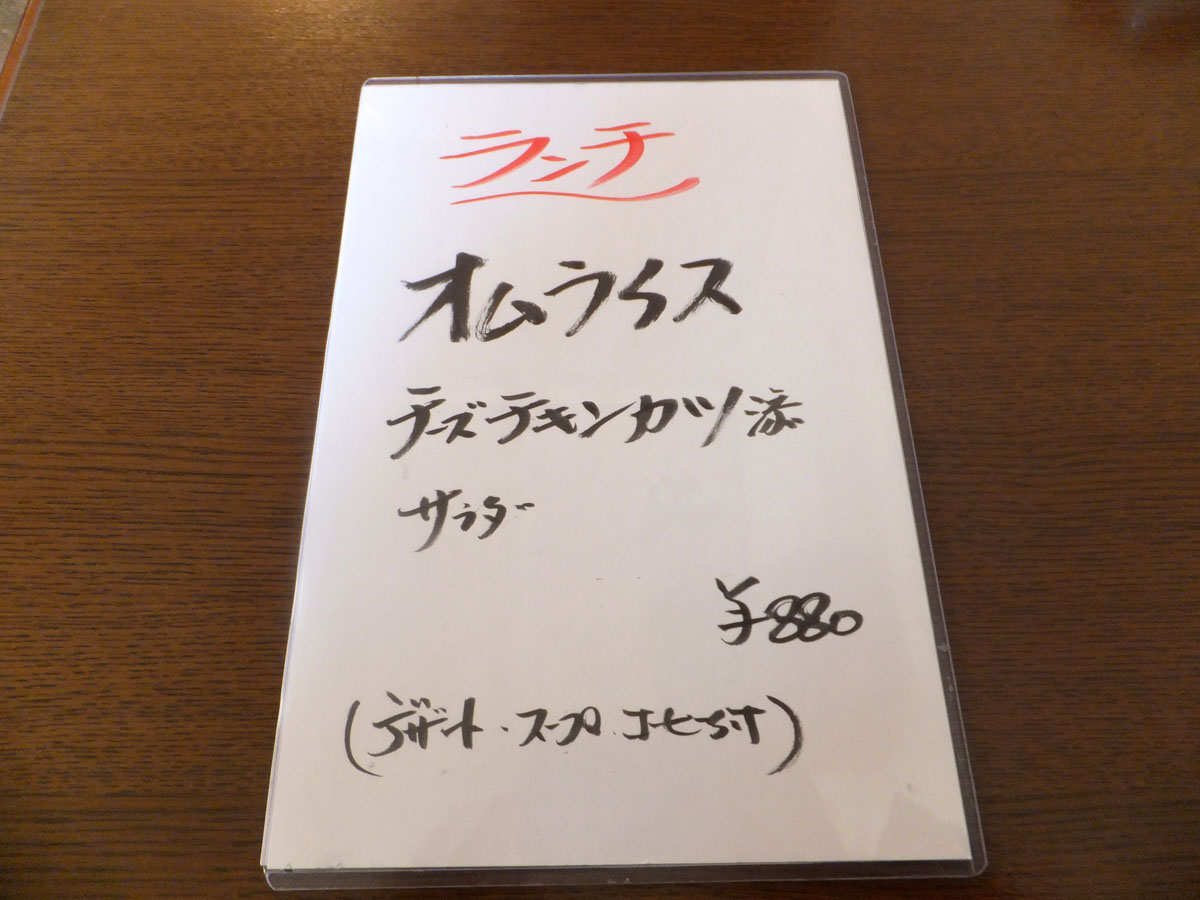 ランチ
オムライス
チーズチキンカツ添
サラダ
¥880
(デザート・スープ・コーヒー付)